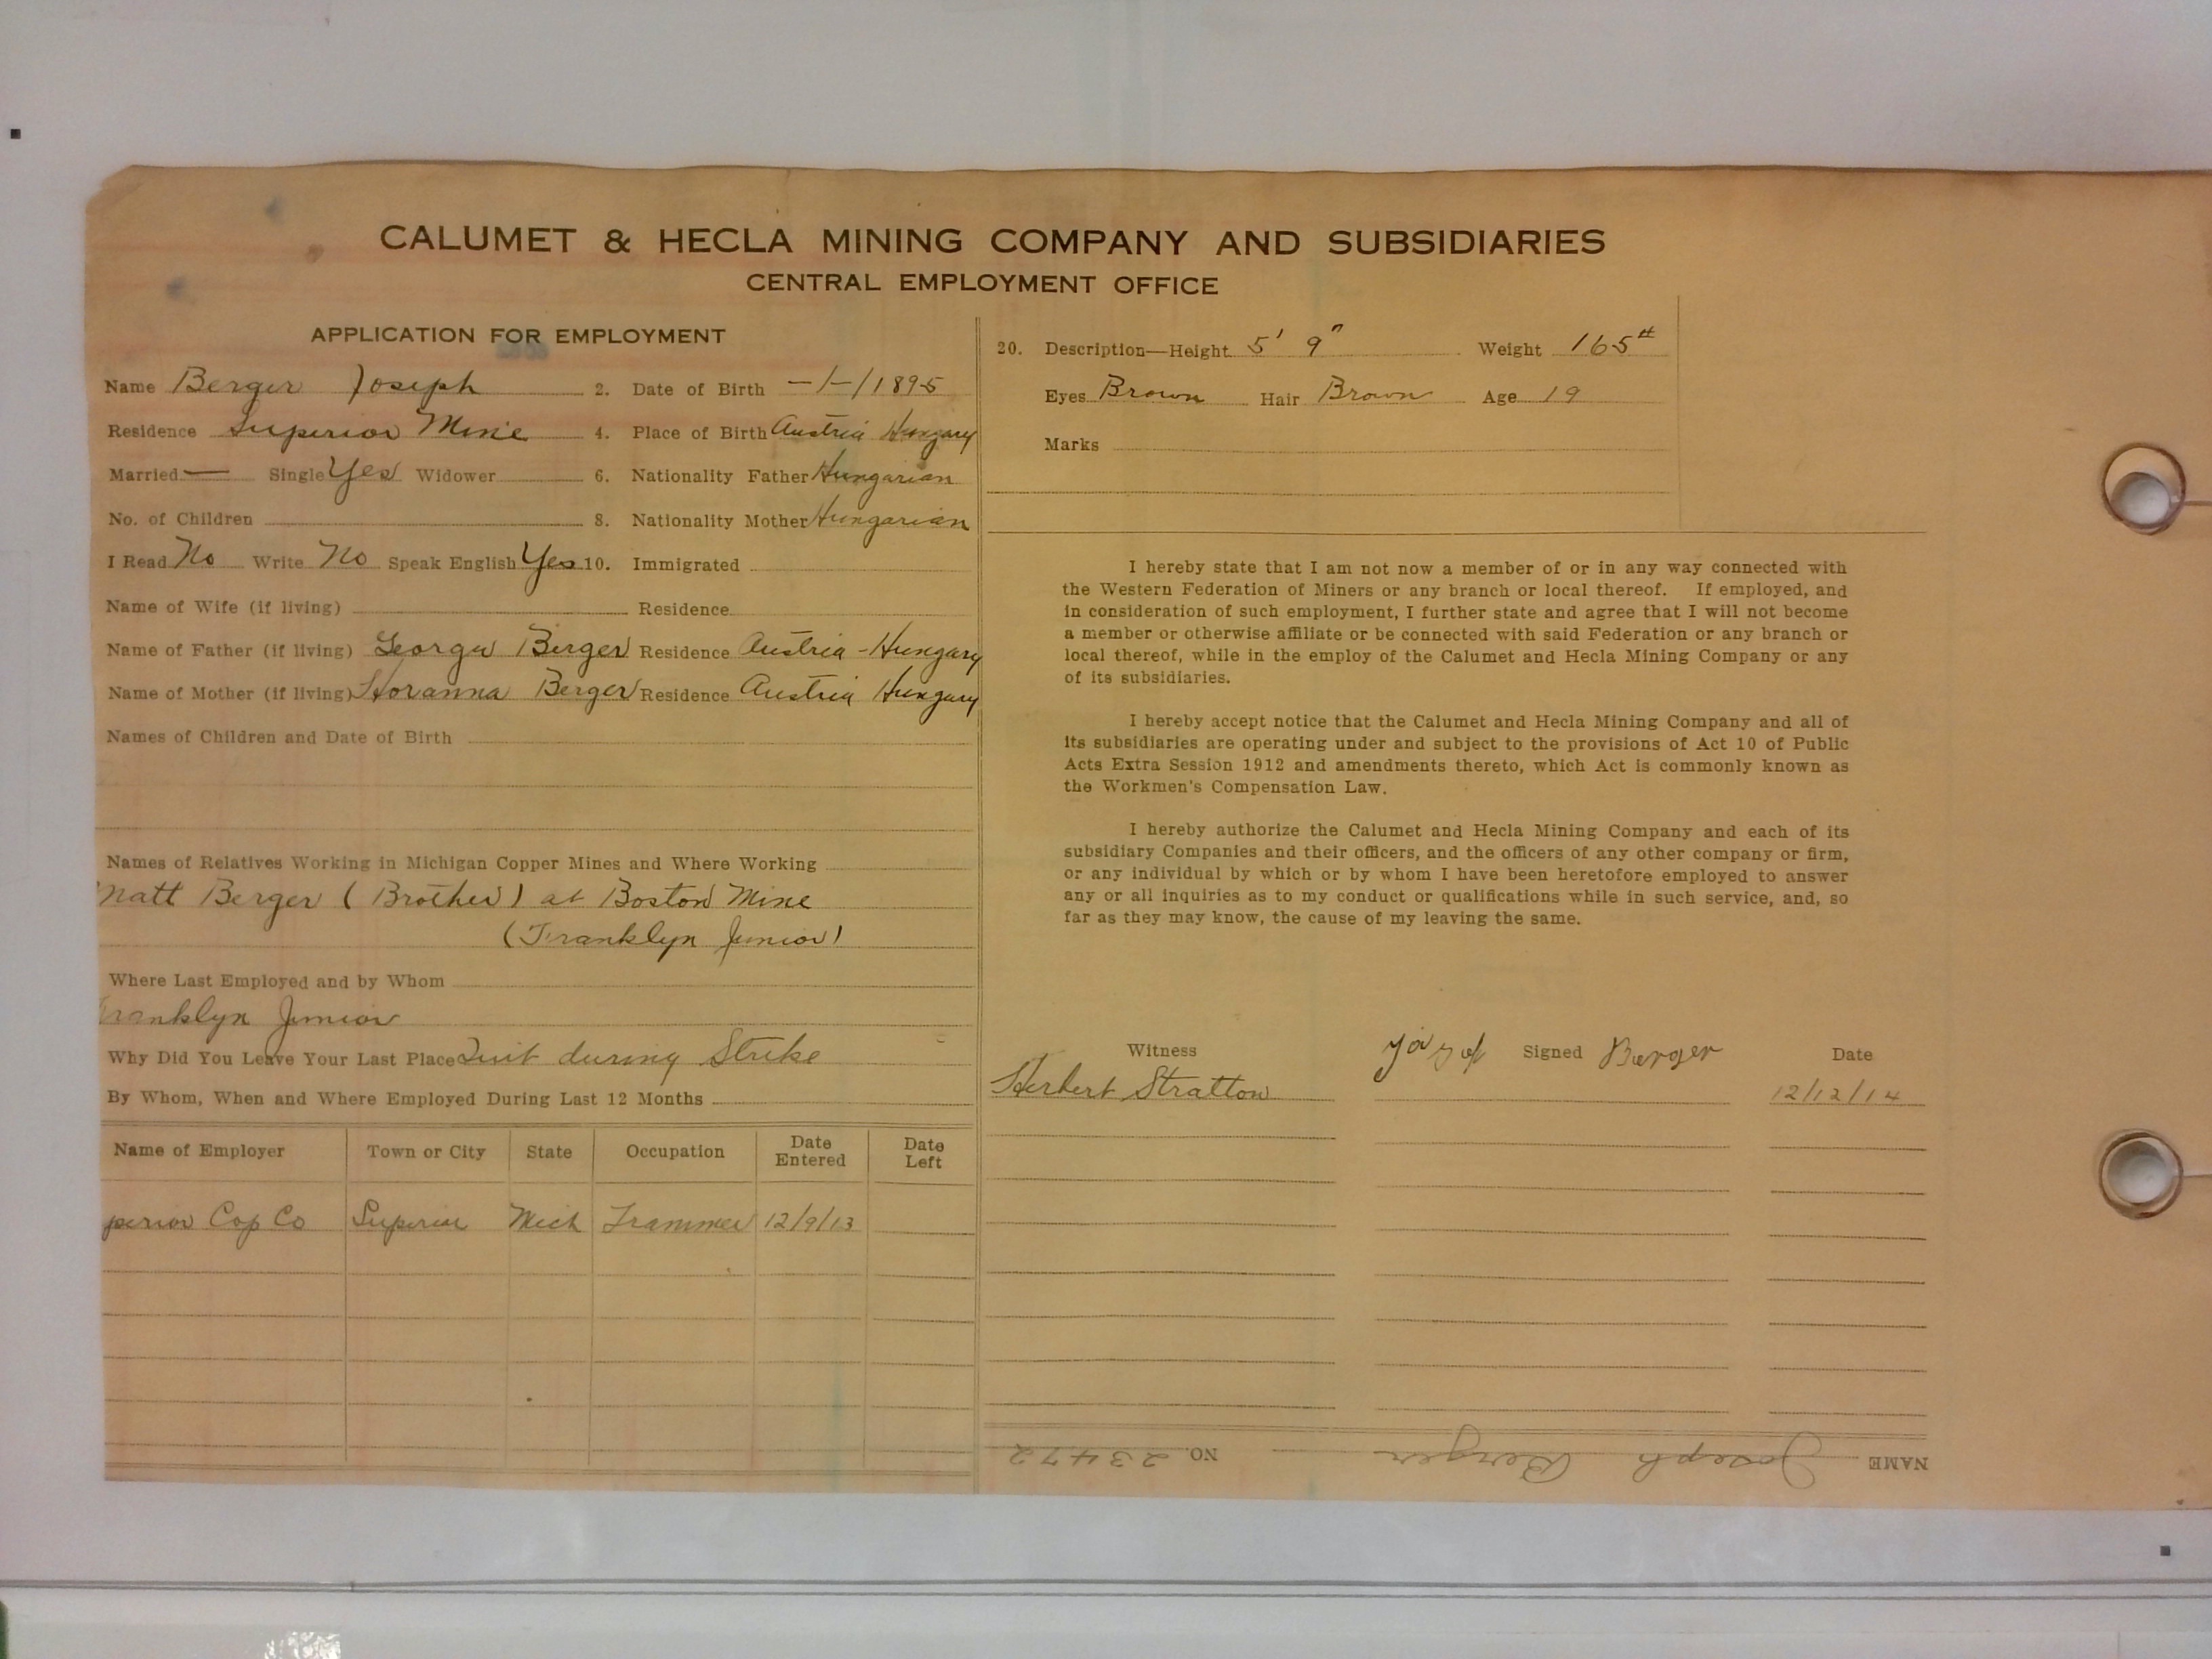 CALUMET & HECLA MINING COMPANY AND SUBSIDIARIES
CENTRAL EMPLOYMENT OFFICE
APPLICATION FOR EMPLOYMENT
Name Berger Joseph 2. Date of Birth -/-/1895
Residence Superior Mine 4. Place of Birth Austria Hungary
Married — Single Yes Widower 6. Nationality Father Hungarian
No. of Children 8. Nationality Mother Hungarian
I Read No Write No Speak English Yes 10. Immigrated
Name of Wife (if living) Residence
Name of Father (if living) Berger Residence Austria - Hungary
Name of Mother (if living) Berger Residence Austria Hungary
Names of Children and Date of Birth
Names of Relatives Working in Michigan Copper Mines and Where Working
Matt Berger (Brother) at Boston Mine
(Franklyn Junior)
Where Last Employed and by Whom
ranklyn Junior
Why Did You Leave Your Last Place Quit during Strike
By Whom, When and Where Employed During Last 12 Months
Name of Employer Town or City State Occupation Date Entered Date Left
perior Cop Co Superior Mich Trammer 12/9/13
20. Description—Height 5' 9" Weight 165#
Eyes Brown Hair Brown Age 19
Marks
I hereby state that I am not now a member of or in any way connected with
the Western Federation of Miners or any branch or local thereof. If employed, and
in consideration of such employment, I further state and agree that I will not become
a member or otherwise affiliate or be connected with said Federation or any branch or
local thereof, while in the employ of the Calumet and Hecla Mining Company or any
of its subsidiaries.
I hereby accept notice that the Calumet and Hecla Mining Company and all of
its subsidiaries are operating under and subject to the provisions of Act 10 of Public
Acts Extra Session 1912 and amendments thereto, which Act is commonly known as
the Workmen's Compensation Law.
I hereby authorize the Calumet and Hecla Mining Company and each of its
subsidiary Companies and their officers, and the officers of any other company or firm,
or any individual by which or by whom I have been heretofore employed to answer
any or all inquiries as to my conduct or qualifications while in such service, and, so
far as they may know, the cause of my leaving the same.
Witness Signed Berger Date
Herbert Stratton 12/12/14
NAME Joseph Berger NO. 23472